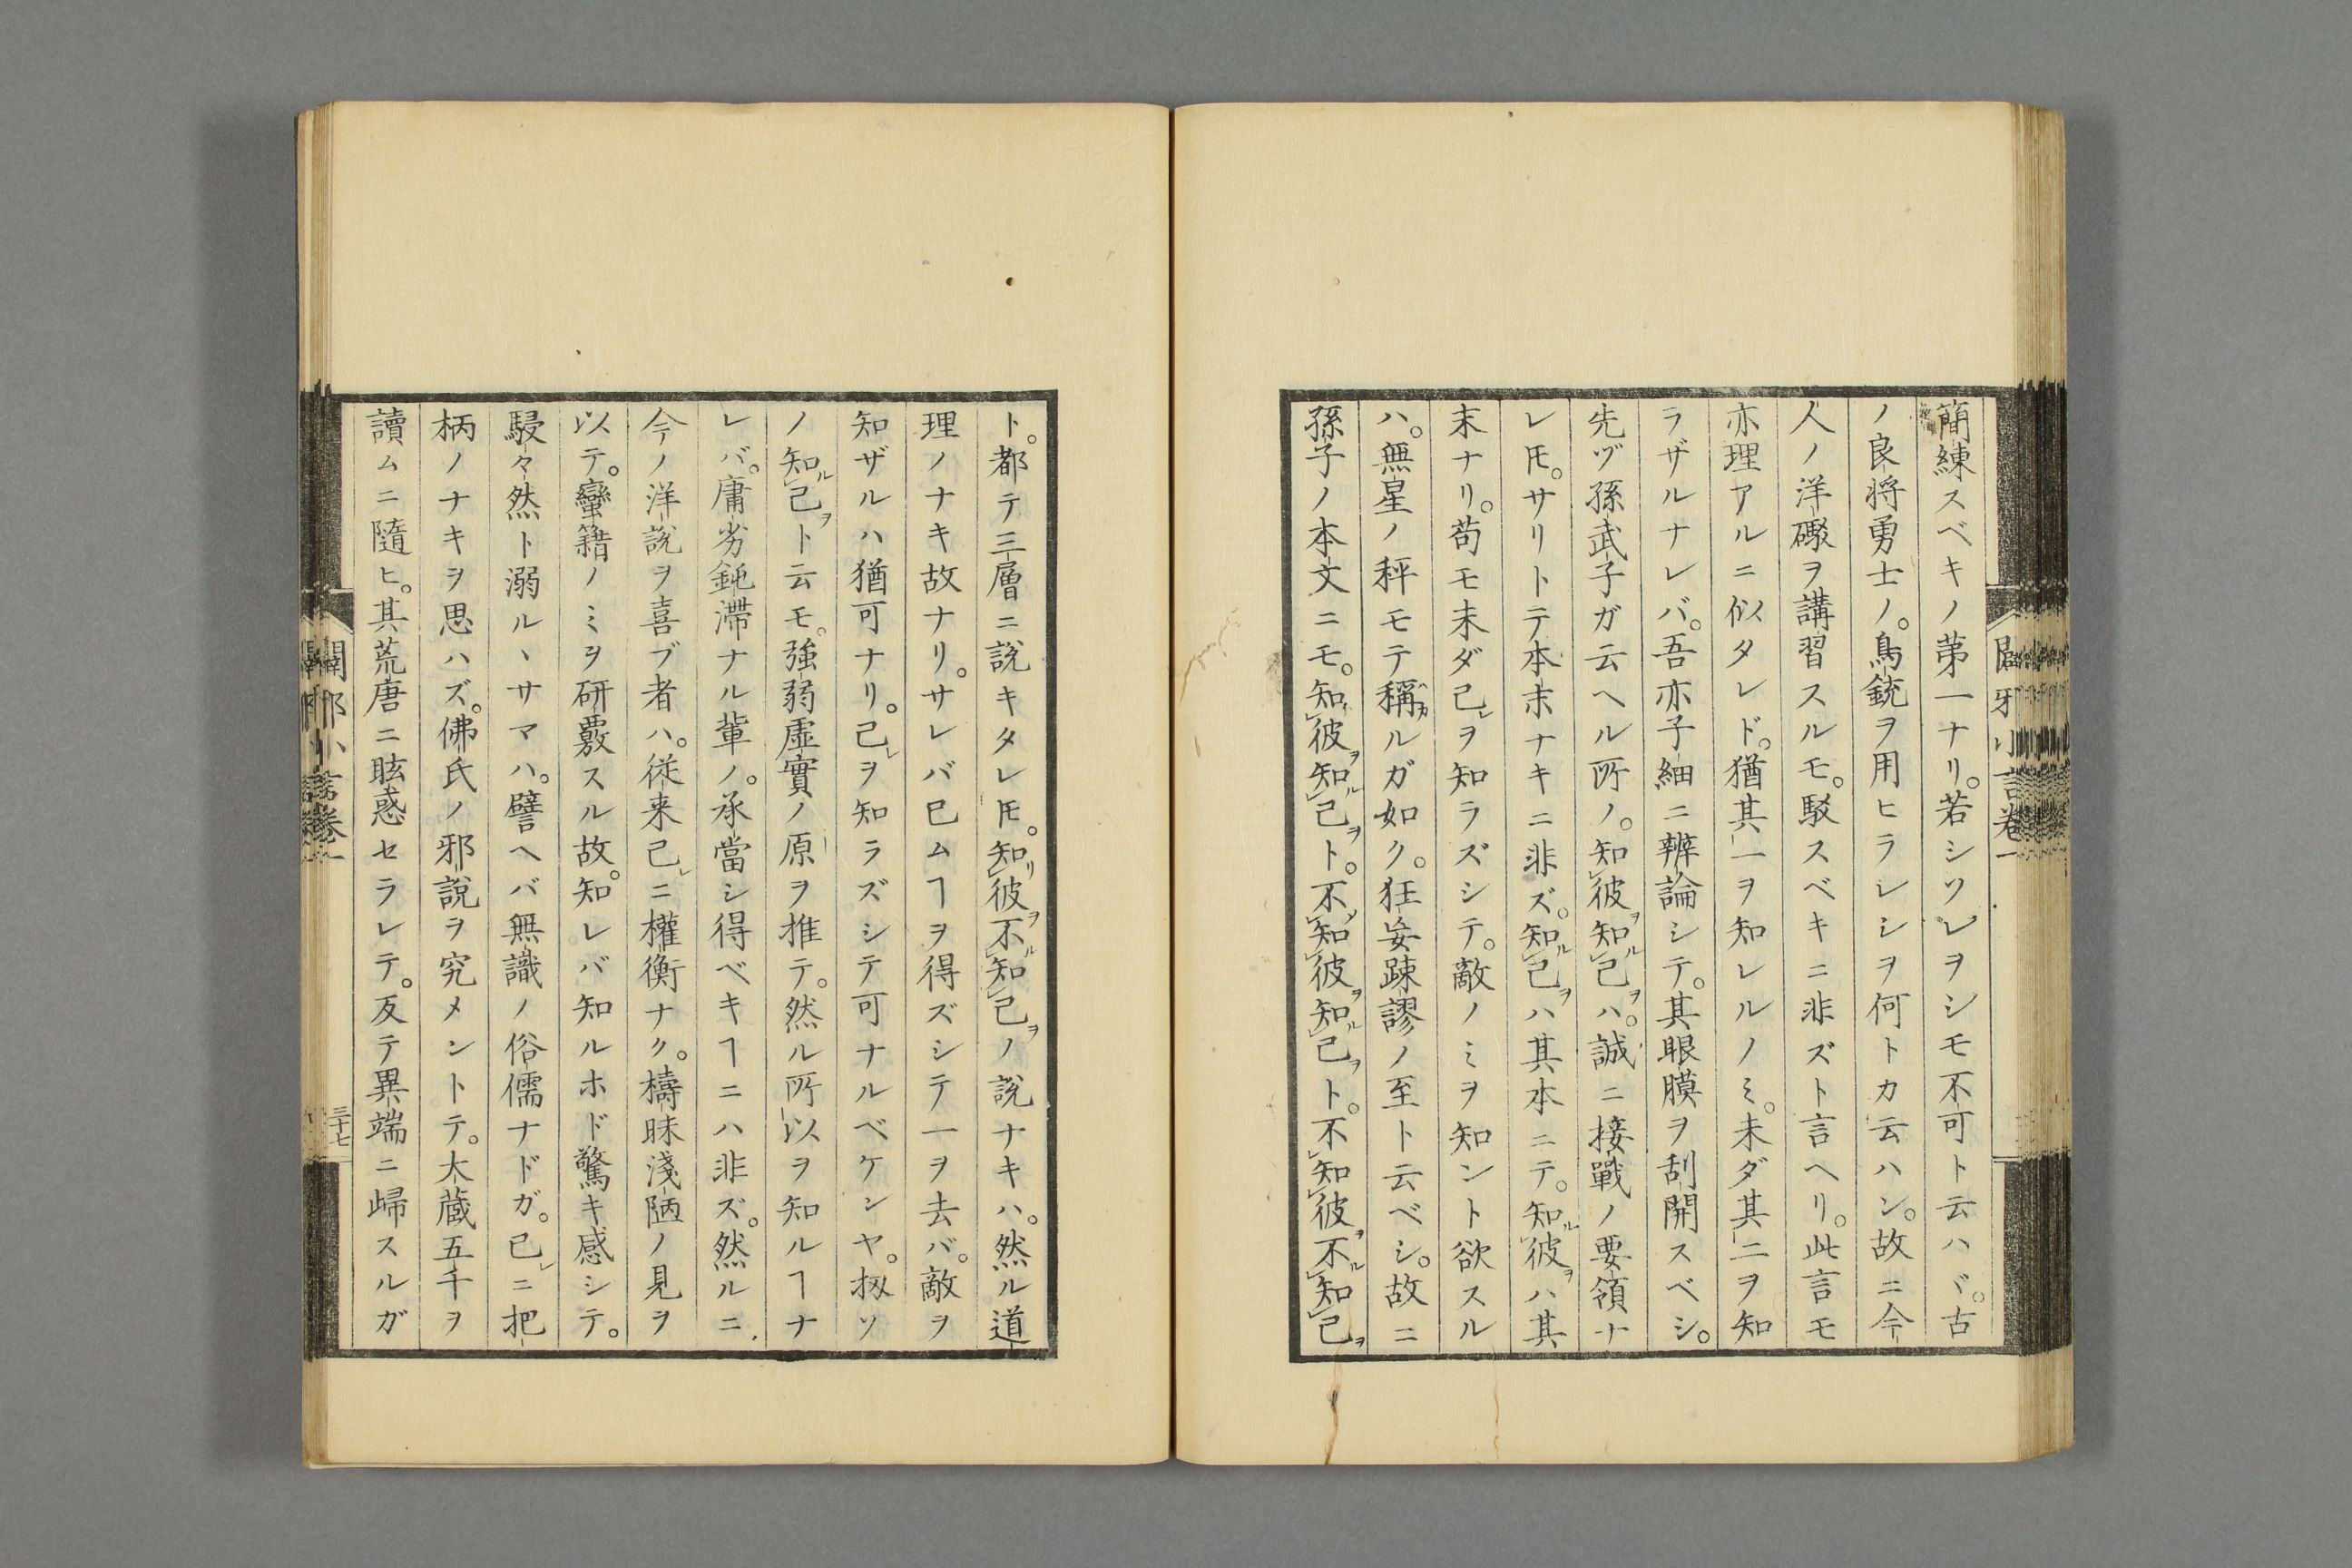 簡練スベキノ第一ナリ。若シソレヲシモ不可ト云ハヾ。古
ノ良将勇士ノ。鳥銃ヲ用ヒラレシヲ何トカ云ハン。故ニ今
人ノ洋礮ヲ講習スルモ。駁スベキニ非ズト言ヘリ。此言モ
亦理アルニ似タレド。猶其一ヲ知レルノミ。未ダ其二ヲ知
ラザルナレバ。吾亦子細ニ辨論シテ。其眼膜ヲ刮開スベシ。
先ヅ孫武子ガ云ヘル所ノ。知彼ヲ知ル己ヲハ。誠ニ接戰ノ要領ナ
レ𪜈。サリトテ本末ナキニ非ズ。知ル己ヲハ其本ニテ。知ル彼ヲハ其
末ナリ。苟モ未ダ己レヲ知ラズシテ。敵ノミヲ知ント欲スル
ハ。無星ノ秤モテ稱ルガ如ク。狂妄踈謬ノ至ト云ベシ。故ニ
孫子ノ本文ニモ。知彼ヲ知ル己ヲト。不知彼ヲ知ル己ヲト。不知彼ヲ不ル知己ヲ
ト。都テ三層ニ説キタレ𪜈。知リ彼ヲ不ル知己ヲノ説ナキハ。然ル道
理ノナキ故ナリ。サレバ已ムヿヲ得ズシテ一ヲ去バ。敵ヲ
知ザルハ猶可ナリ。己レヲ知ラズシテ可ナルベケンヤ。扨ソ
ノ知ル己ヲト云モ。強弱虚實ノ原ヲ推テ。然ル所以ヲ知ルヿナ
レバ。庸劣鈍滞ナル輩ノ。承當シ得ベキヿニハ非ズ。然ルニ
今ノ洋説ヲ喜ブ者ハ。従来己レニ權衡ナク。檮昧淺陋ノ見ヲ
以テ。蠻籍ノミヲ研覈スル故。知レバ知ルホド驚キ感シテ。
駸々然ト溺ルヽサマハ。譬ヘバ無識ノ俗儒ナドガ。己レニ把
柄ノナキヲ思ハズ。佛氏ノ邪説ヲ究メントテ。大蔵五千ヲ
讀ムニ隨ヒ。其荒唐ニ眩惑セラレテ。反テ異端ニ歸スルガ
闢邪小言卷一
三十七